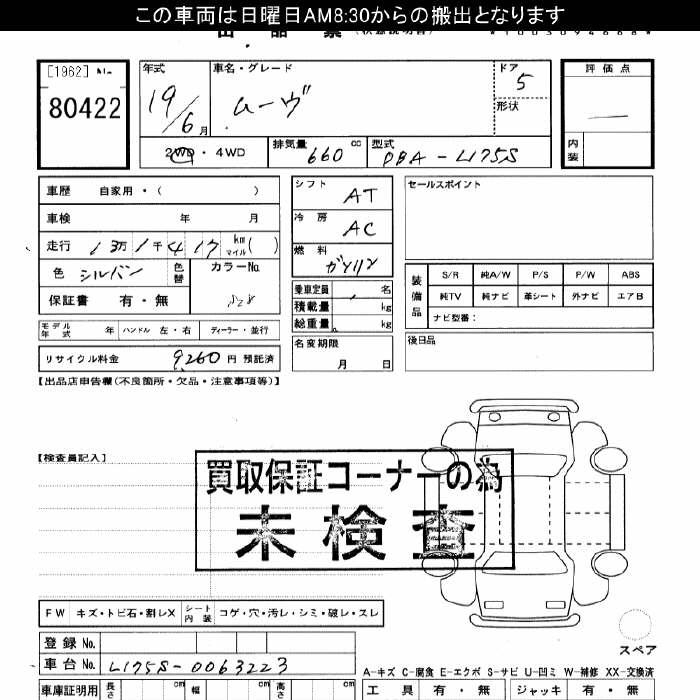 この車両は日曜日AM8:30からの搬出となります
[1962] No.
80422
年式
19/6月
車名・グレード
ムーヴ
ドア
5
形状
評価点
内装
2WD・4WD
排気量 660 cc
型式 DBA-L175S
車歴 自家用・( )
車検 年 月
走行 13万1千417 km マイル ( )
色 シルバー 色替
カラーNo.
保証書 有・無
モデル年式 年 ハンドル 左・右 ディーラー・並行
リサイクル料金 9,260 円 預託済
シフト AT
冷房 AC
燃料 ガソリン
乗車定員 名
積載量 kg
総重量 kg
名変期限
月 日
セールスポイント
装備品
S/R 純A/W P/S P/W ABS
純TV 純ナビ 革シート 外ナビ エアB
ナビ型番:
後日品
【出品店申告欄(不良箇所・欠品・注意事項等)】
【検査員記入】
買取保証コーナーの為
未検査
FW キズ・トビ石・割レX シート内装 コゲ・穴・汚レ・シミ・破レ・スレ
登録No.
車台No. L175S-0063223
車庫証明用 長さ cm 幅 cm 高さ cm
スペア
A-キズ C-腐食 E-エクボ S-サビ U-凹ミ W-補修 XX-交換済
工具 有・無 ジャッキ 有・無